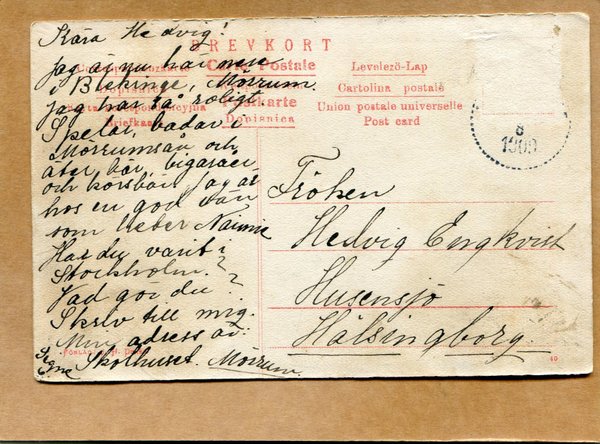 Kära Hedvig!
Jag är nu här nere
i Blekinge, Mörrum.
Jag har så roligt.
Spelar, badar i
Mörrumsån och
äter bär, bigaråer
och körsbär. Jag är
hos en god vän
som heter Nannie
Har du varit i
Stockholm?
Vad gör du?
Skriv till mig.
Min adress är:
Skolhuset. Mörrum.
Signe
BREVKORT
Carte Postale
Levelező-Lap
Dopisnice
Cartolina postale
Postkarte
Union postale universelle
Briefkaart
Dopisnica
Post card
8
1909
Fröken
Hedvig Engkvist
Husensjö
Hälsingborg.
10